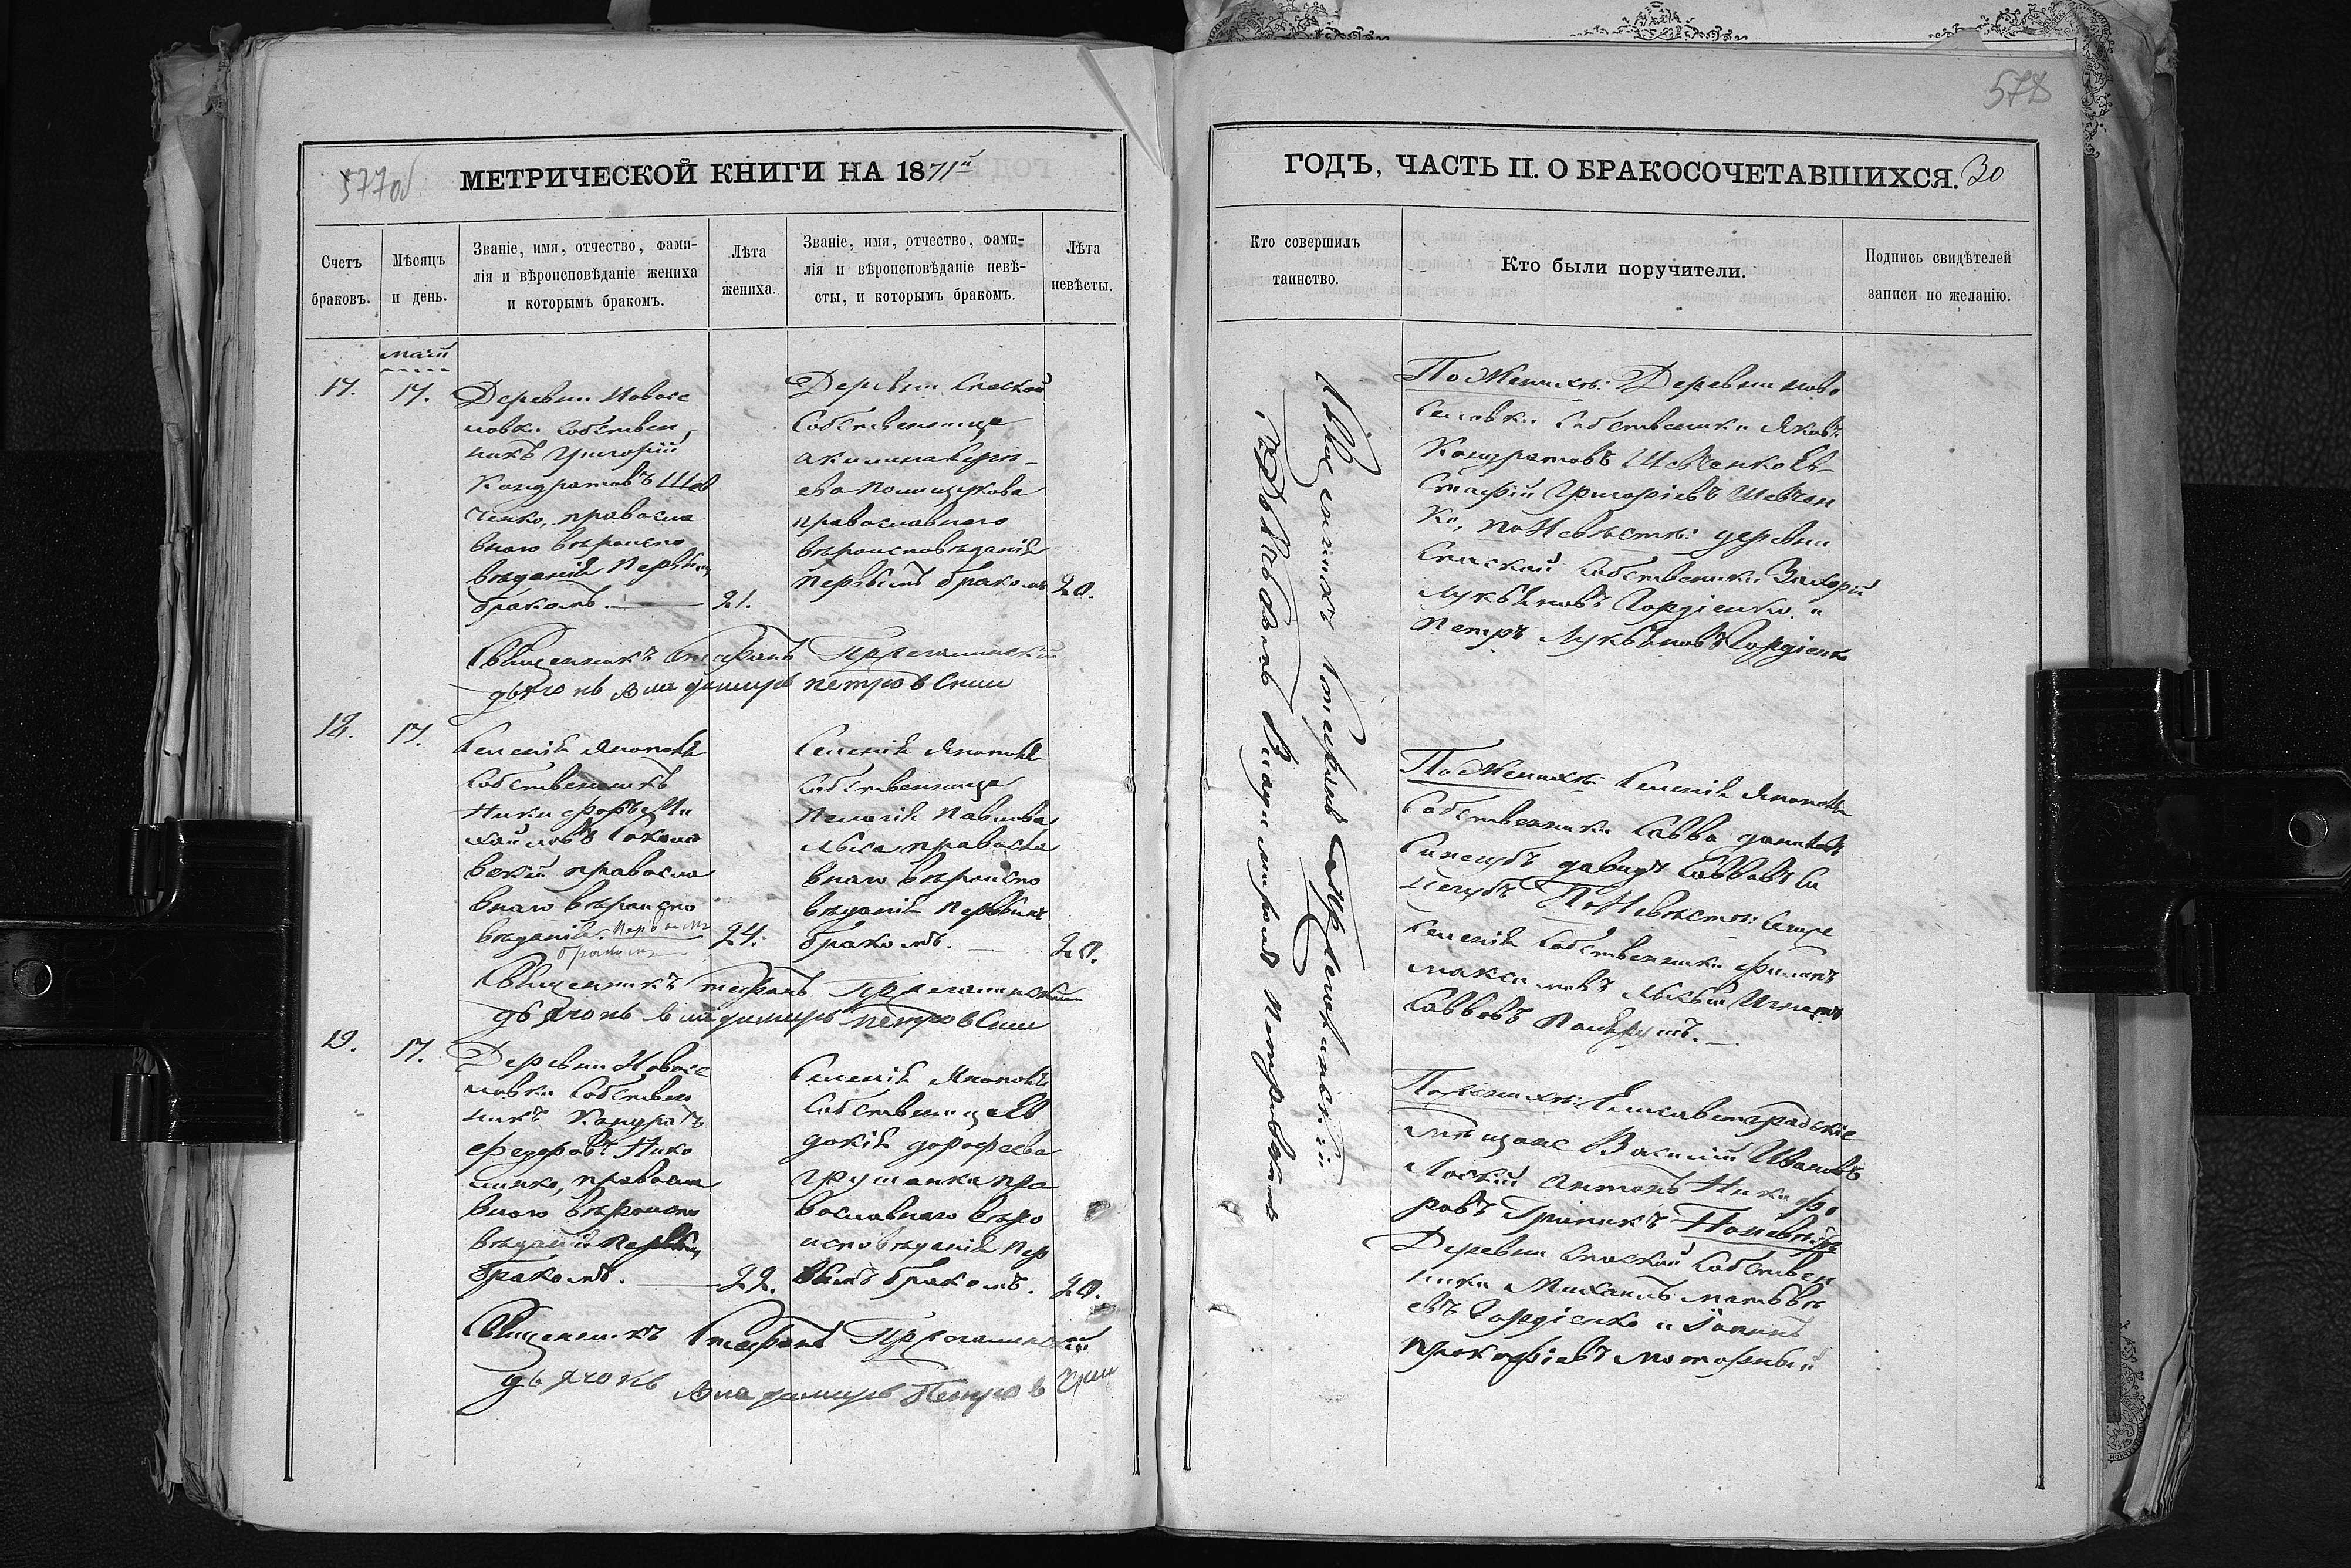 577об
МЕТРИЧЕСКОЙ КНИГИ НА 1871й
Счетъ браковъ.
Мѣсяцъ и день.
Званіе, имя, отчество, фами-
лія и вѣроисповѣданіе жениха
и которымъ бракомъ.
Лѣта жениха.
Званіе, имя, отчество, фами-
лія и вѣроисповѣданіе невѣ-
сты, и которымъ бракомъ.
Лѣта невѣсты.
май
17.
17.
Деревни Новосе
ловки собствен
никъ Григорій
Кондратовъ Шев
ченко, правосла
внаго вѣроиспо
вѣданія первым
бракомъ.
21.
Деревни Спаской
собственница
Акилина
ева Полищукова
православнаго
вѣроисповѣданія
первымъ бракомъ
20.
Священникъ Стефанъ
дьячокъ Владимиръ Петровский
18.
17.
Селенія
собственникъ
Никифоръ Ми
хайловъ
вский правосла
внаго вѣроиспо
вѣданія. первымъ
бракомъ
24.
Селенія
собственница
Пелагія Павлова
правосла
внаго вѣроиспо
вѣданія первымъ
бракомъ.
20.
Священникъ Стефанъ
дьячокъ Владимиръ Петровский
19.
17.
Деревни Новосе
ловки собствен
никъ Кондратъ
Федоровъ Нико
ленко, правосла
внаго вѣроиспо
вѣданія первым
бракомъ.
22.
Селенія
собственница Ев
докія Дорофеева
пра
вославнаго вѣро
исповѣданія пер
вымъ бракомъ.
20.
Священникъ Стефанъ
дьячокъ Владимиръ Петровский
578
ГОДЪ, ЧАСТЬ II. О БРАКОСОЧЕТАВШИХСЯ. 30
Кто совершилъ
таинство.
Кто были поручители.
Подпись свидѣтелей
записи по желанію.
Священникъ Стефанъ
съ Дьячкомъ Владимиромъ Петровскимъ
По Женихѣ: Деревни Ново
селовки собственники Яковъ
Кондратовъ Шевченко Ев
стафій Григоріевъ Шевчен
ко, по Невѣстѣ: деревни
Спаской собственники Захорій
Лукьяновъ Гордіенко и
Петръ Лукьяновъ Гордіенко
По Женихѣ: Селенія
собственники Савва
Синегубъ Давидъ Саввовъ Си
негубъ По Невѣстѣ:
селенія собственники Филипъ
Максимовъ
Саввовъ
По женихѣ: Елисаветградскіе
мѣщане Василій Ивановъ
Антонъ Никифо
ровъ По невѣстѣ
Деревни Спаской собствен
ники Михаилъ Матвѣе
евъ Гордіенко и
Прокофіевъ Моторный